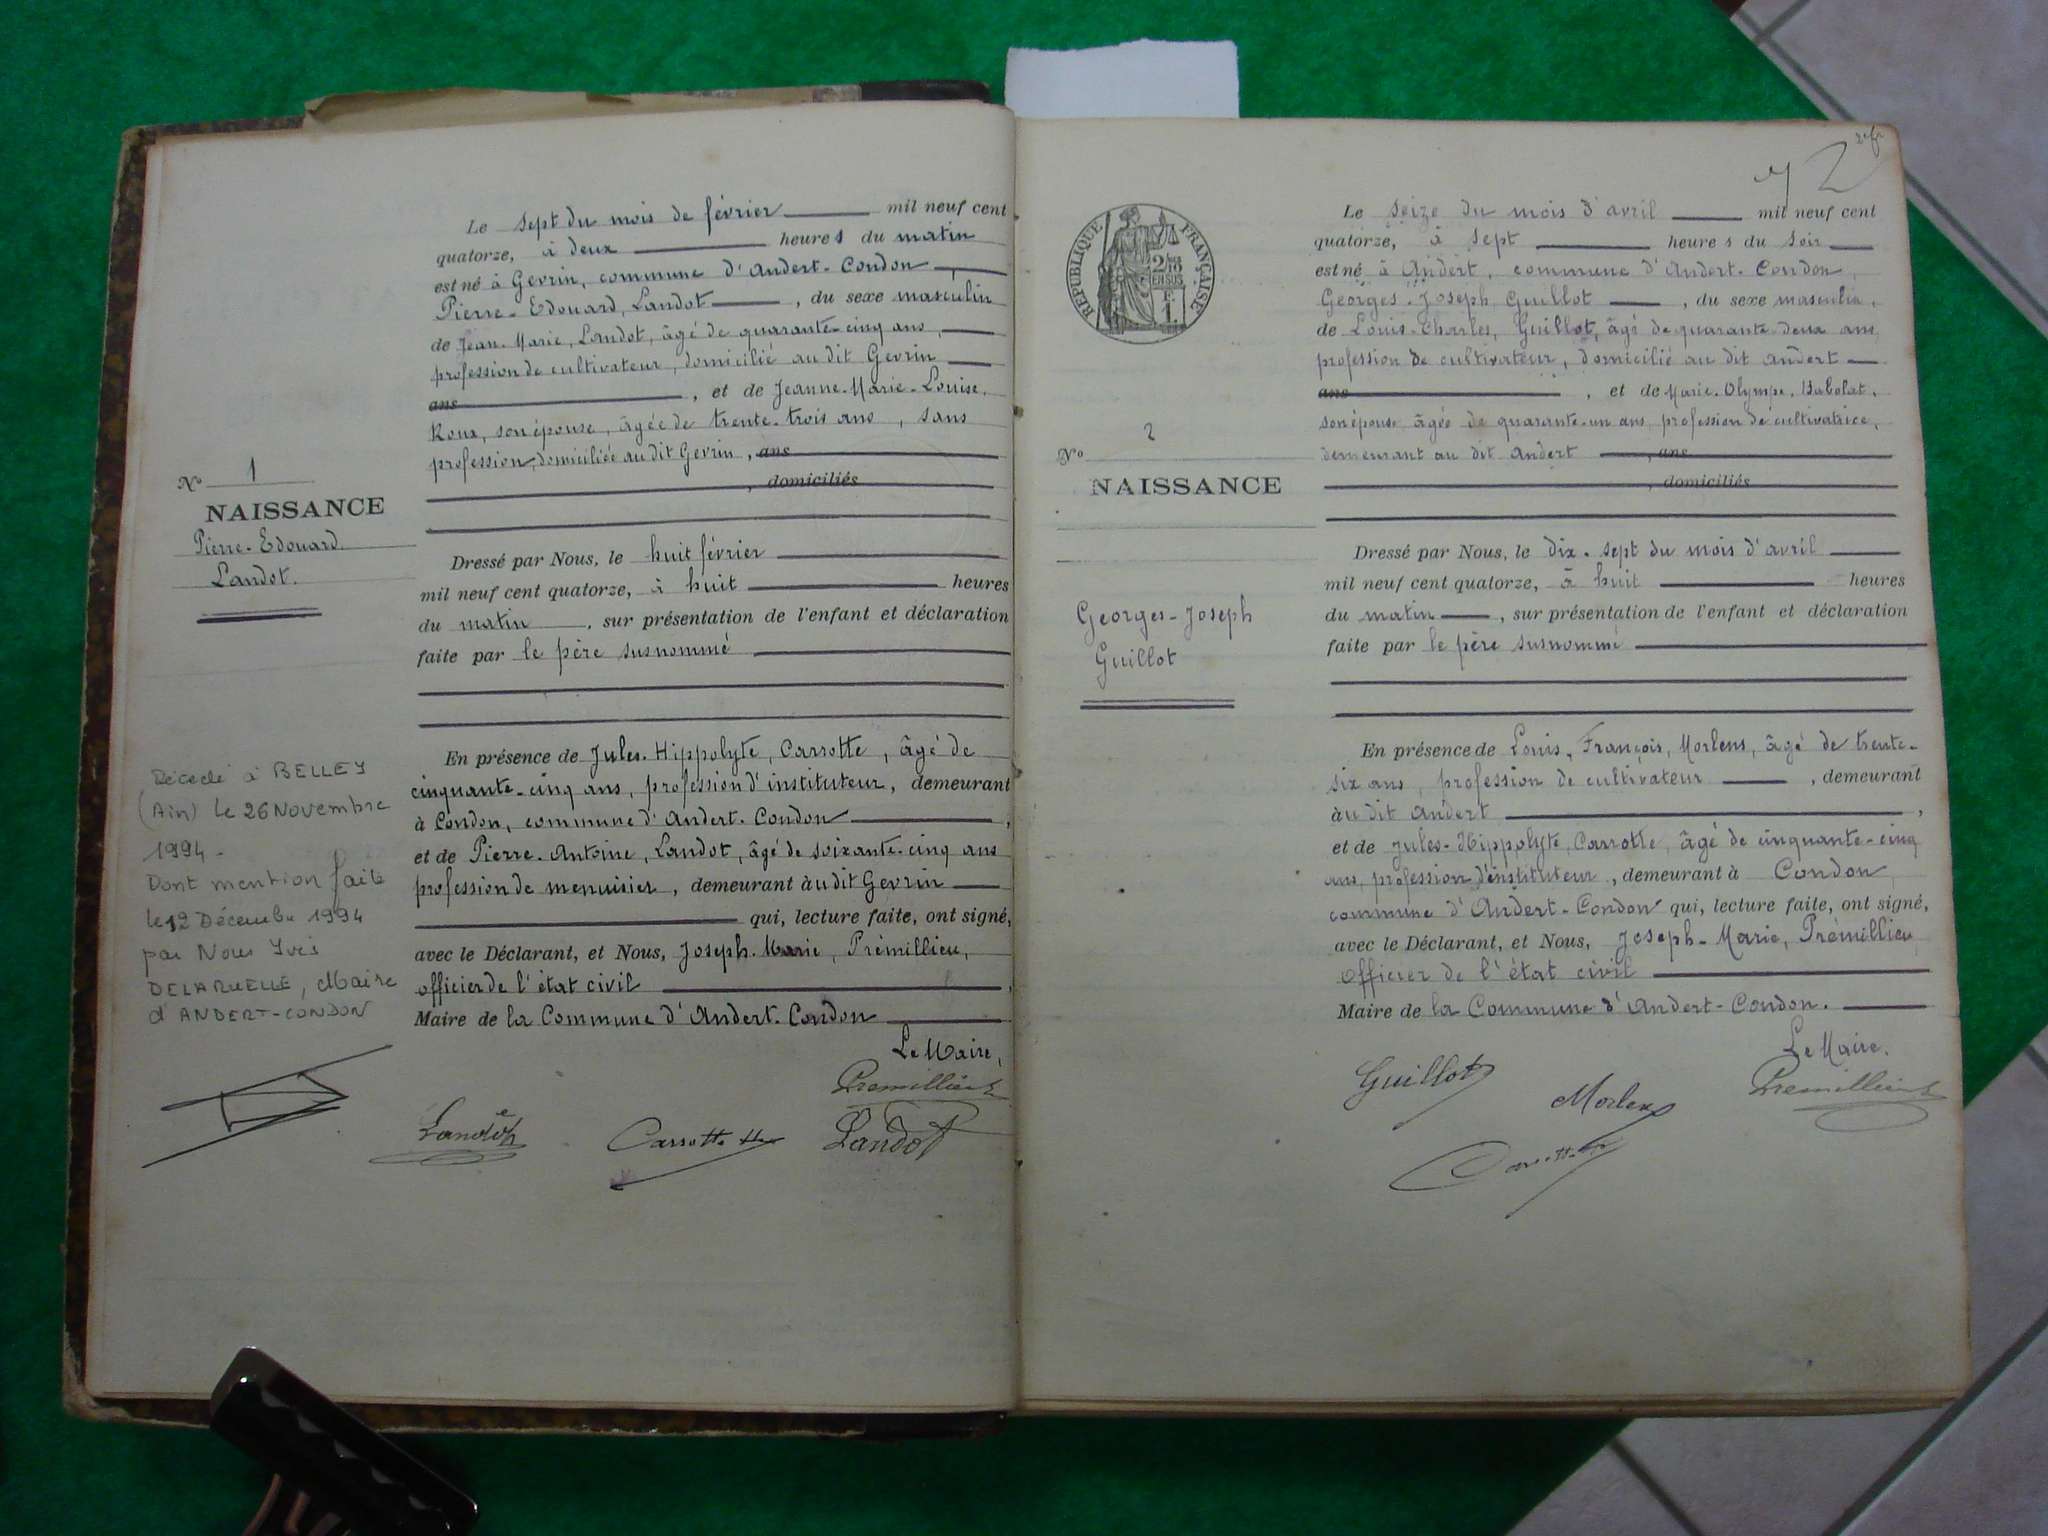 Le sept du mois de février mil neuf cent
quatorze, à deux heures du matin
est né à Gevrin, commune d'Andert-Condon,
Pierre-Edouard, Landot, du sexe masculin
de Jean-Marie, Landot, âgé de quarante-cinq ans,
profession de cultivateur, domicilié au dit Gevrin
ans, et de Jeanne-Marie-Louise,
Roux, son épouse, âgée de trente-trois ans, sans
profession, domiciliée au dit Gevrin, ans
, domiciliés
N° 1
NAISSANCE
Pierre-Edouard
Landot.
Dressé par Nous, le huit février
mil neuf cent quatorze, à huit heures
du matin, sur présentation de l'enfant et déclaration
faite par le père susnommé
En présence de Jules-Hippolyte, Carrotte, âgé de
cinquante-cinq ans, profession d'instituteur, demeurant
à Condon, commune d'Andert-Condon,
et de Pierre-Antoine, Landot, âgé de soixante-cinq ans
profession de menuisier, demeurant àu dit Gevrin
qui, lecture faite, ont signé,
avec le Déclarant, et Nous, Joseph-Marie, Prémillieu,
officier de l'état civil,
Maire de la Commune d'Andert-Condon
Le Maire,
Premillieu
Landot
Carrotte
Landot
Décédé à BELLEY
(Ain) le 26 Novembre
1994.
Dont mention faite
le 12 Décembre 1994
par Nous Yves
DELARUELLE, Maire
d'ANDERT-CONDON
2
RÉPUBLIQUE FRANÇAISE
2/10
EN SUS
F.
1.
Le seize du mois d'avril mil neuf cent
quatorze, à sept heures du soir
est né à Andert, commune d'Andert-Condon,
Georges-Joseph, Guillot, du sexe masculin,
de Louis-Charles, Guillot, âgé de quarante-deux ans
profession de cultivateur, domicilié au dit Andert
ans, et de Marie-Olympe, Babolat,
son épouse âgée de quarante-un ans, profession de cultivatrice,
demeurant au dit Andert, ans
, domiciliés
N° 2
NAISSANCE
Georges-Joseph
Guillot
Dressé par Nous, le dix-sept du mois d'avril
mil neuf cent quatorze, à huit heures
du matin, sur présentation de l'enfant et déclaration
faite par le père susnommé
En présence de Louis-François, Morlens, âgé de trente-
six ans, profession de cultivateur, demeurant
àu dit Andert,
et de Jules-Hippolyte, Carrotte, âgé de cinquante-cinq
ans, profession d'instituteur, demeurant à Condon,
commune d'Andert-Condon qui, lecture faite, ont signé,
avec le Déclarant, et Nous, Joseph-Marie, Prémillieu
officier de l'état civil
Maire de la Commune d'Andert-Condon.
Le Maire,
Guillot
Morlens
Premillieu
Carrotte